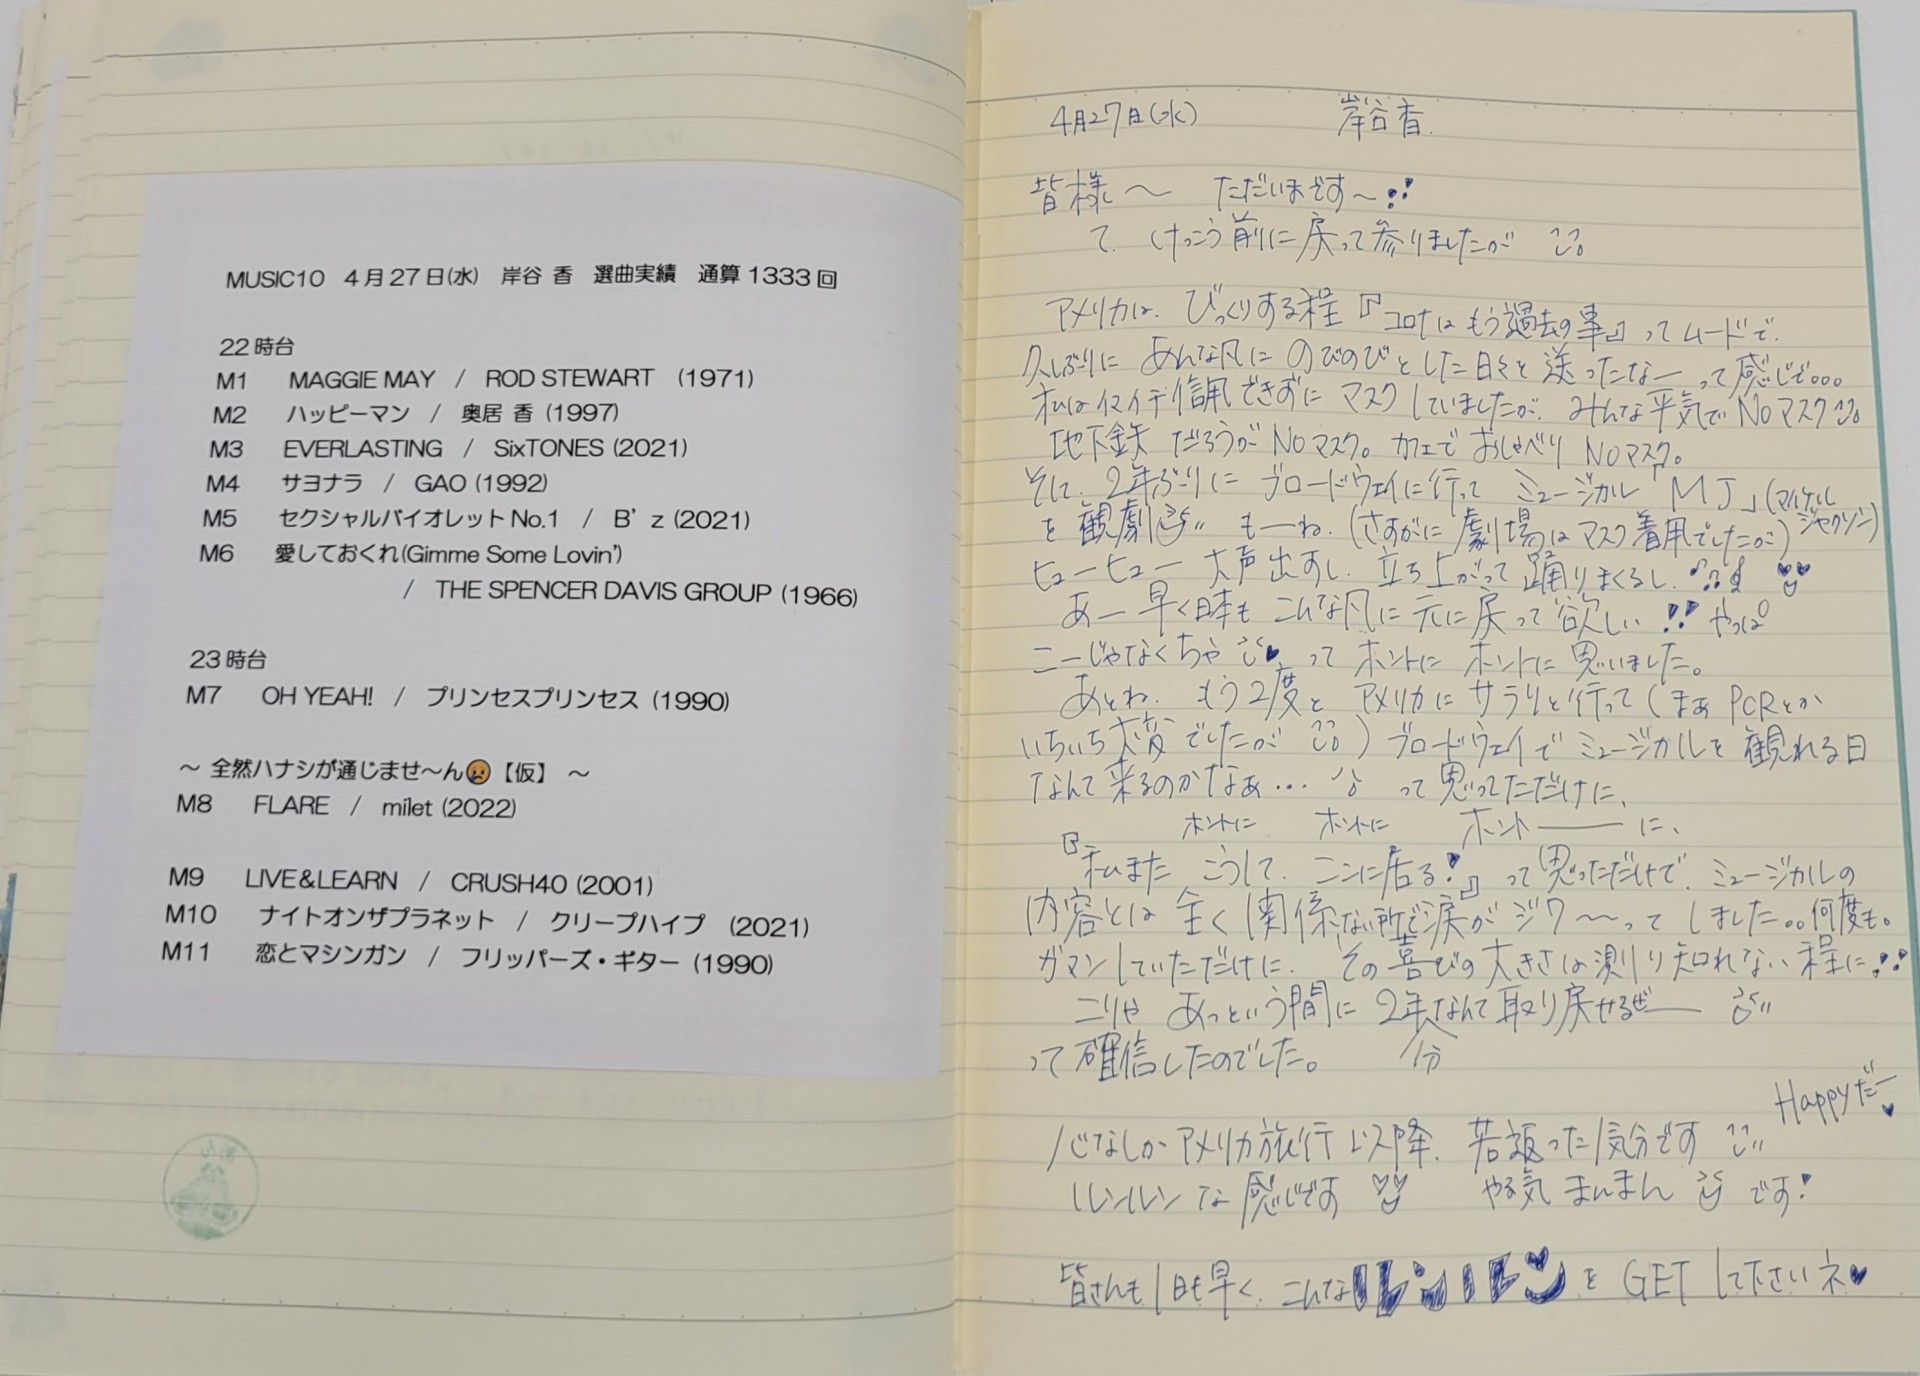 MUSIC10 4月27日(水) 岸谷 香 選曲実績 通算1333回
22時台
M1 MAGGIE MAY / ROD STEWART (1971)
M2 ハッピーマン / 奥居 香 (1997)
M3 EVERLASTING / SixTONES (2021)
M4 サヨナラ / GAO (1992)
M5 セクシャルバイオレットNo.1 / B'z (2021)
M6 愛しておくれ(Gimme Some Lovin')
/ THE SPENCER DAVIS GROUP (1966)
23時台
M7 OH YEAH! / プリンセスプリンセス (1990)
～ 全然ハナシが通じませ～ん😢【仮】 ～
M8 FLARE / milet (2022)
M9 LIVE&LEARN / CRUSH40 (2001)
M10 ナイトオンザプラネット / クリープハイプ (2021)
M11 恋とマシンガン / フリッパーズ・ギター (1990)
4月27日(水) 岸谷香.
皆様～ ただいまです～!!
て、けっこう前に戻って参りましたが
アメリカは、びっくりする程『コロナはもう過去の事』ってムードで、
久しぶりに あんな風に のびのびとした日々を送ったなーって感じで。。。
私はイマイチ信用できずに マスクしていましたが、みんな平気でNoマスク
地下鉄だろうがNoマスク。カフェでおしゃべりNoマスク。
そして、2年ぶりに ブロードウェイに行って ミュージカル「MJ」(マイケルジャクソン)
を観劇 もーね、(さすがに劇場はマスク着用でしたが)
ヒューヒュー 大声出すし、立ち上がって踊りまくるし、♪♫
あー早く日本もこんな風に元に戻って欲しい!! やっぱ
こーじゃなくちゃ♥ って ホントに ホントに 思いました。
あとね、もう2度と アメリカに サラリと行って(まぁPCRとか
いちいち大変でしたが)ブロードウェイでミュージカルを観れる日
なんて来るのかなぁ… って思ってただけに、
ホントに ホントに ホント――に、
『私また こうして、ここに居る!』って思っただけで、ミュージカルの
内容とは全く関係ない所で涙がジワ～～ってしました。。何度も。
ガマンしていただけに、その喜びの大きさは測り知れない程に!!
こりゃ あっという間に 2年分なんて取り戻せるぜ――
って確信したのでした。
心なしかアメリカ旅行以降、若返った気分です Happyだー♥
ルンルンな感じです やる気まんまん です!
皆さんも1日も早く、こんなルンルンを GETして下さいネ♥